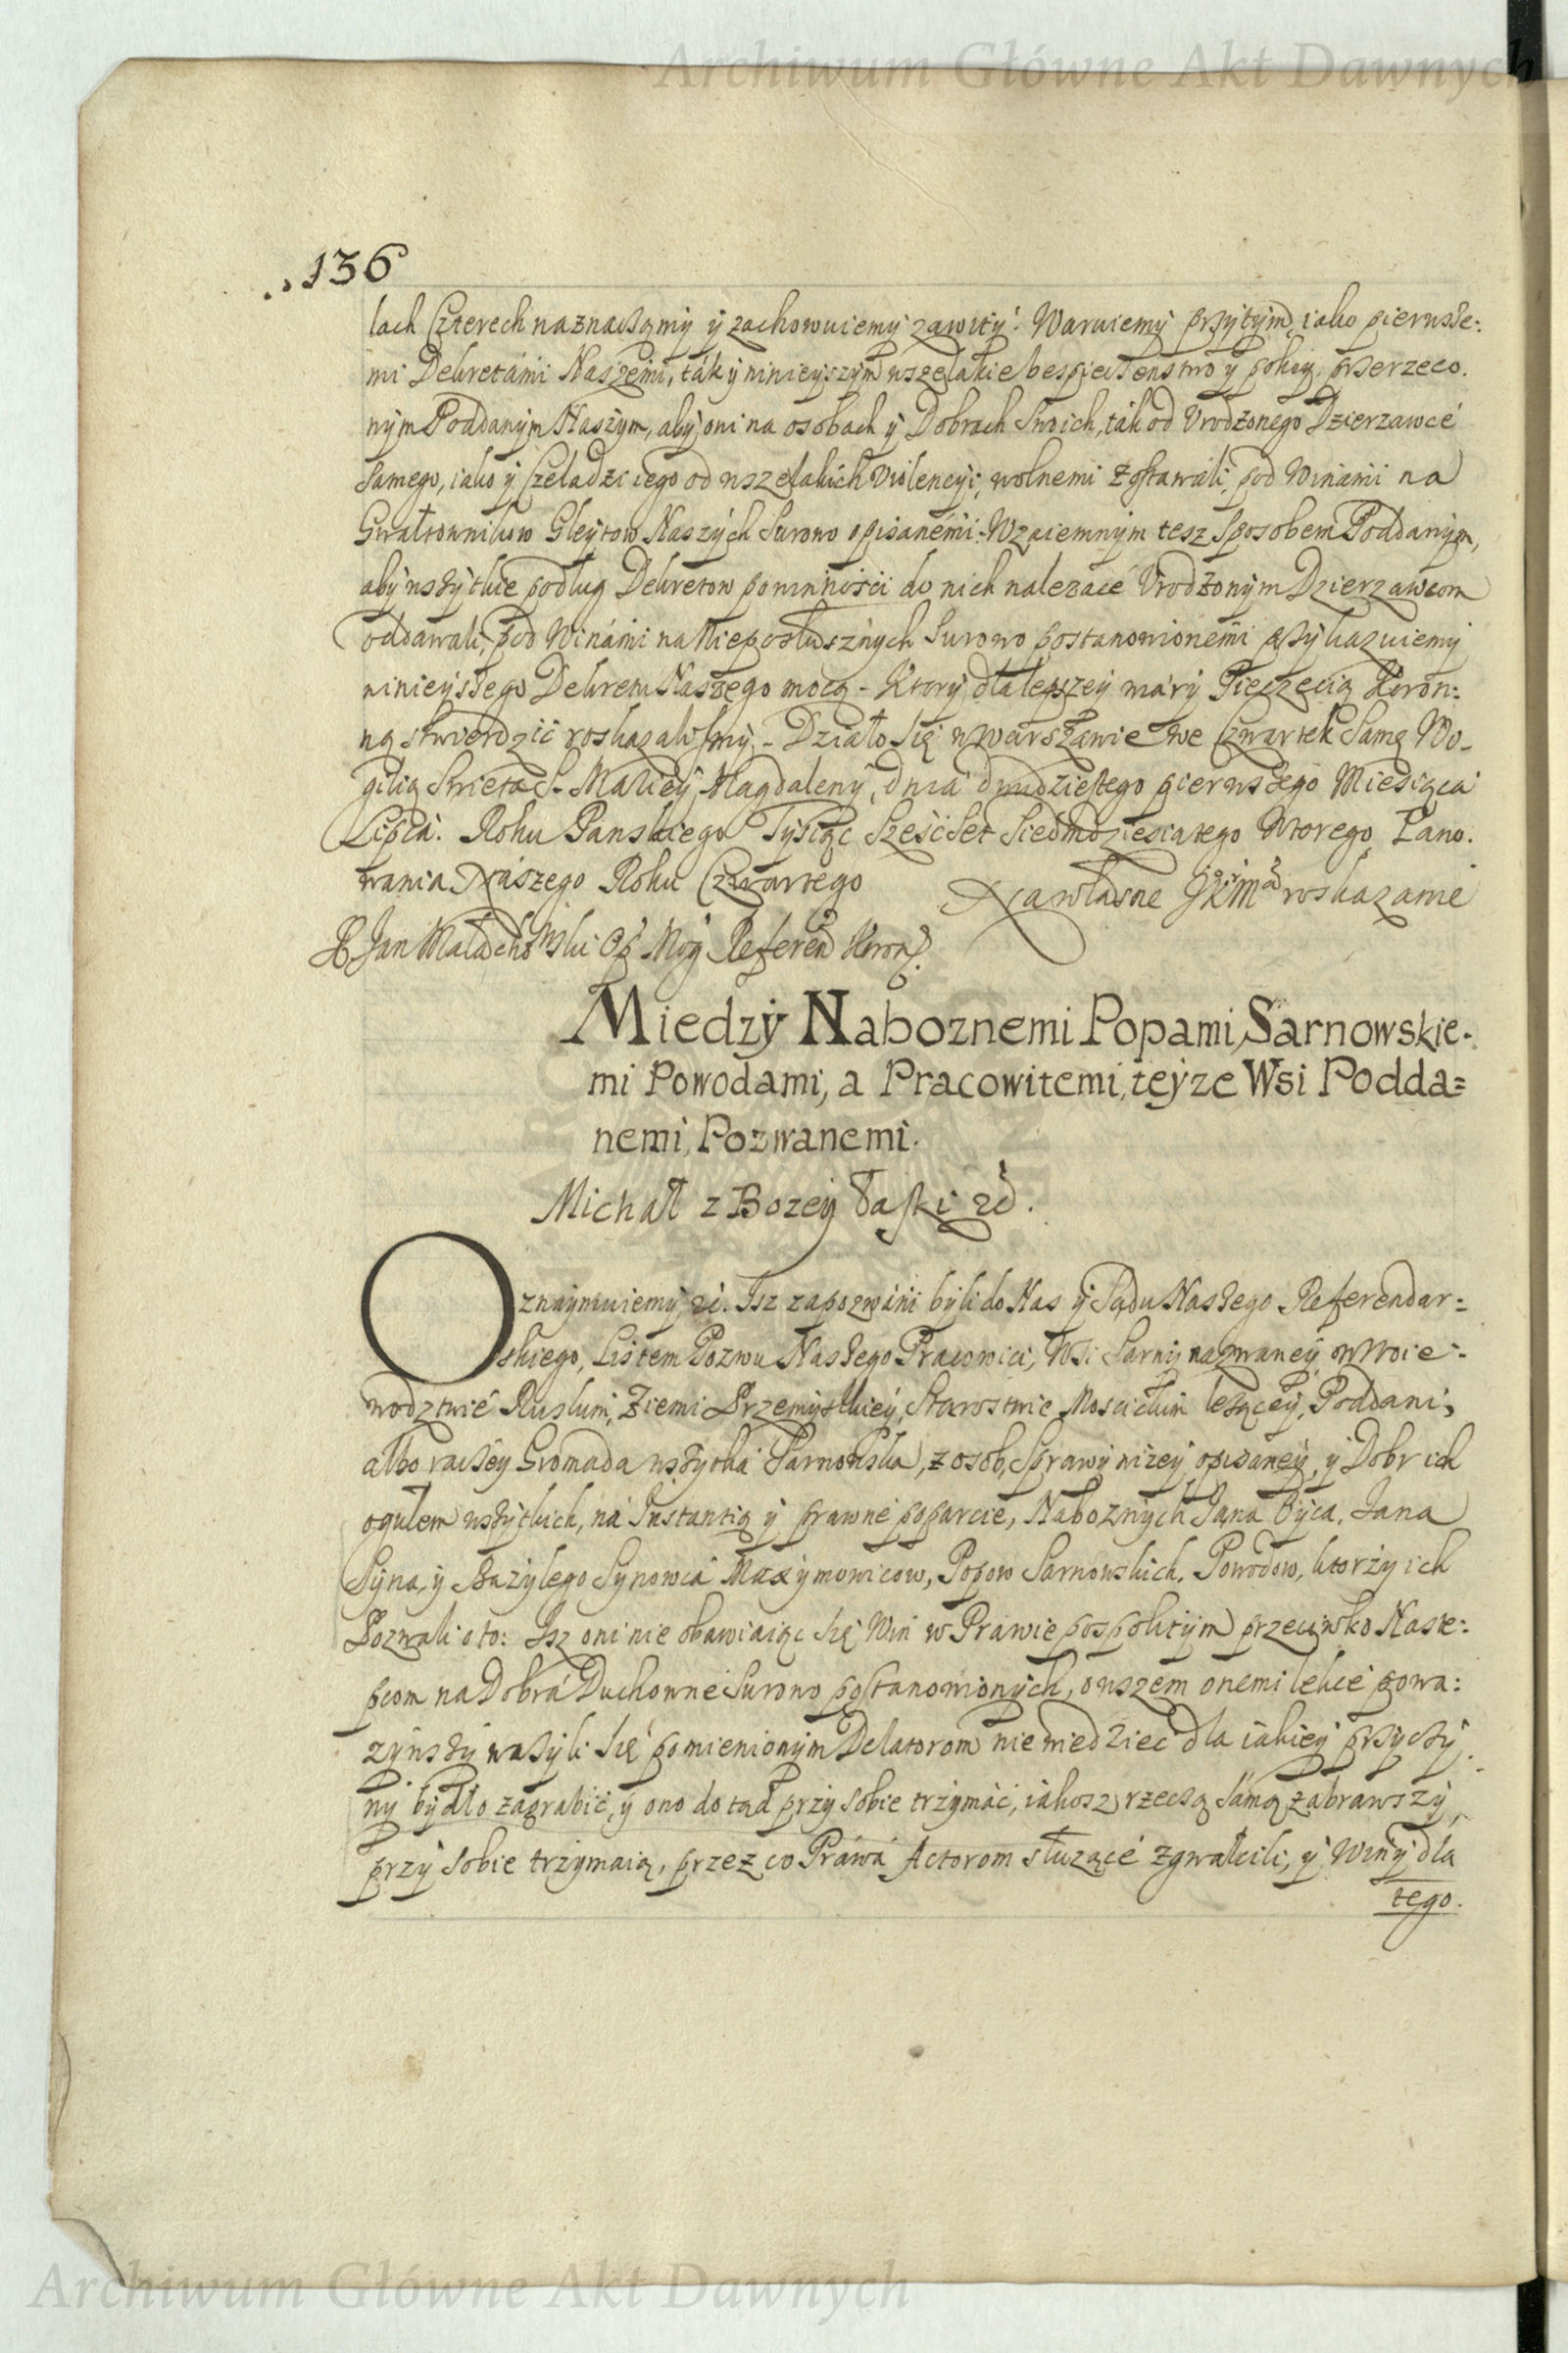 Archiwum Główne Akt Dawnych
136
lach Czterech naznaczamy y zachowuiemy zawity. Waruiemy przytym, iako pierwsze:
mi Dekretámi Naszemi, ták y ninieyszym wszelakie bespieczenstwo y pokoy przerzeco.
nym Poddanym Naszym, aby oni na osobach y Dobrach Swoich, ták od Vrodzonego Dzierzawcé
samego, iako y Czeladzi iego od wszelakich violencyi, wolnemi zostawali, pod Winámi na
Gwałtownikow Gleytow Naszych Surowo opisanémi: Wzaiemnym tesz Sposobem Poddanym,
aby wszytkie podług Dekretow powinności do nich nalezacé Vrodzonym Dzierzawcom
oddawali, pod Winámi na Nieposłusznych Surowo postanowionemi przykazuiemy
ninieyszego Dekretu Naszego mocą - Ktory dla lepszey wáry Pieczęcią Koron:
ną stwierdzić roskazalismy - Działo Się w Warszawie we Czwartek Samą Wi-
gilią Swieta S. Mariey Magdaleny, dnia dwudziestego pierwszego Miesiąca
Lipca. Roku Panskiego Tysiąc Sześćset Siedmdziesiątego Wtorego Pano.
wania Nászego Roku Czwartego Na własne JKMci roskazanie
X Jan Małachowski Op Mog Referen Koron.
Miedzy Naboznemi Popami Sarnowskie-
mi Powodami, a Pracowitemi, teyze Wsi Podda=
nemi, Pozwanemi.
Michał z Bozey Łaski etc.
Oznaymuiemy etc. Isz zapozwáni byli do Nas y Sądu Naszego Referendar=
skiego, Listem Pozwu Naszego Pracowici, Wsi Sarny nazwaney w Woie-
wodztwié Ruskim, Ziemi Przemyskiey, Starostwie Mościckim lezącey, Poddani,
albo raczey Gromada wszytka Sarnowska, z osob, Sprawy nizey opisaney, y Dobr ich
ogułem wszytkich, na Instantią y prawné poparcie, Naboznych Jana Oyca, Jana
Syna, y Bazylego Synowca Maxymowicow, Popow Sarnowskich, Powodow, ktorzy ich
Pozwali o to: Isz oni nie obawiaiąc Się Win w Prawie pospolitym przeciwko Nastę:
pcom na Dobrá Duchowné Surowo postanowionych, owszem onemi lekcé powa:
zywszy wazyli Się pomienionym Delatorom nie wiedziec dla iakiey przyczy
ny bydło zagrabić, y ono do tąd przy sobie trzymáć, iakosz rzeczą Sámą zabrawszy,
przy sobie trzymaią, przez co Práwá Actorom słuzącé zgwałcili, y Winy dla
tego.
Archiwum Główne Akt Dawnych